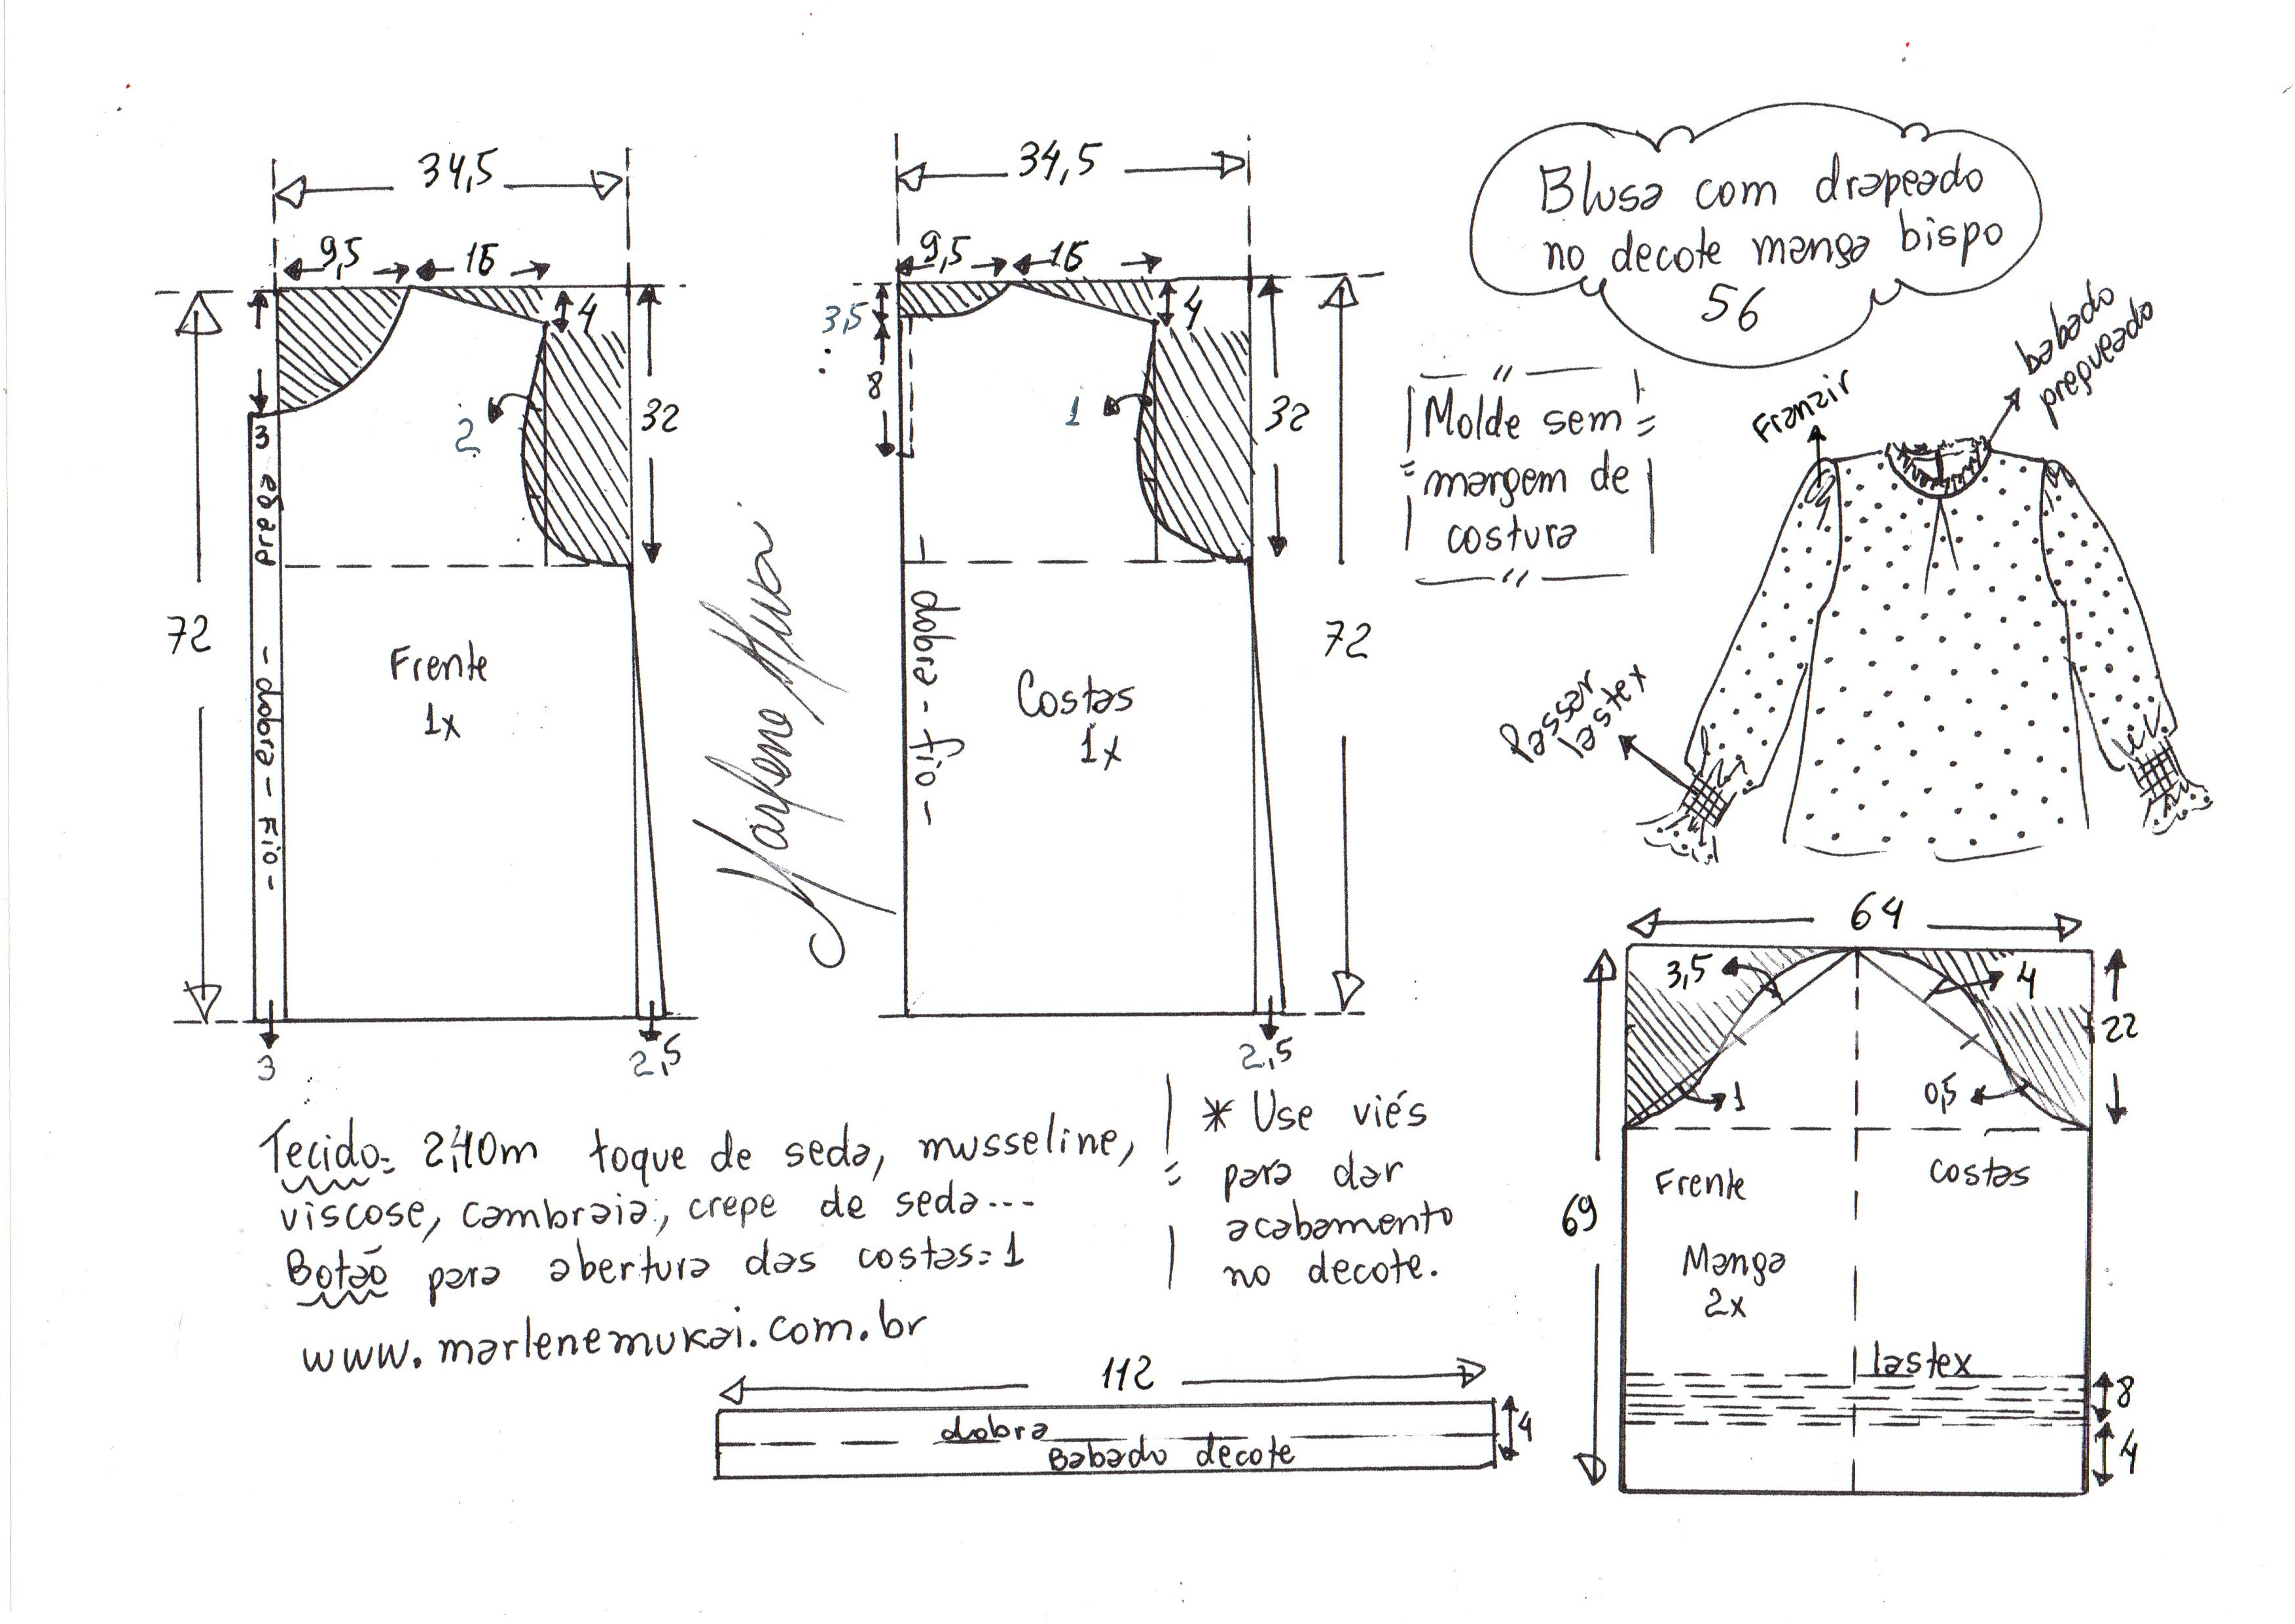 34,5
9,5
15
4
32
2
3
prega
- dobra - Fio -
72
Frente
1x
3
2,5
34,5
9,5
15
3,5
8
4
1
32
dobra - fio -
72
Costas
1x
2,5
Blusa com drapeado
no decote manga bispo
56
Molde sem
margem de
costura
Franzir
babado
pregueado
Passar
lastex
64
3,5
4
22
1
0,5
Frente
costas
69
Manga
2x
lastex
8
4
Tecido= 2,40m toque de seda, musseline,
viscose, cambraia, crepe de seda...
Botão para abertura das costas=1
www.marlenemukai.com.br
* Use viés
para dar
acabamento
no decote.
112
dobra
Babado decote
4